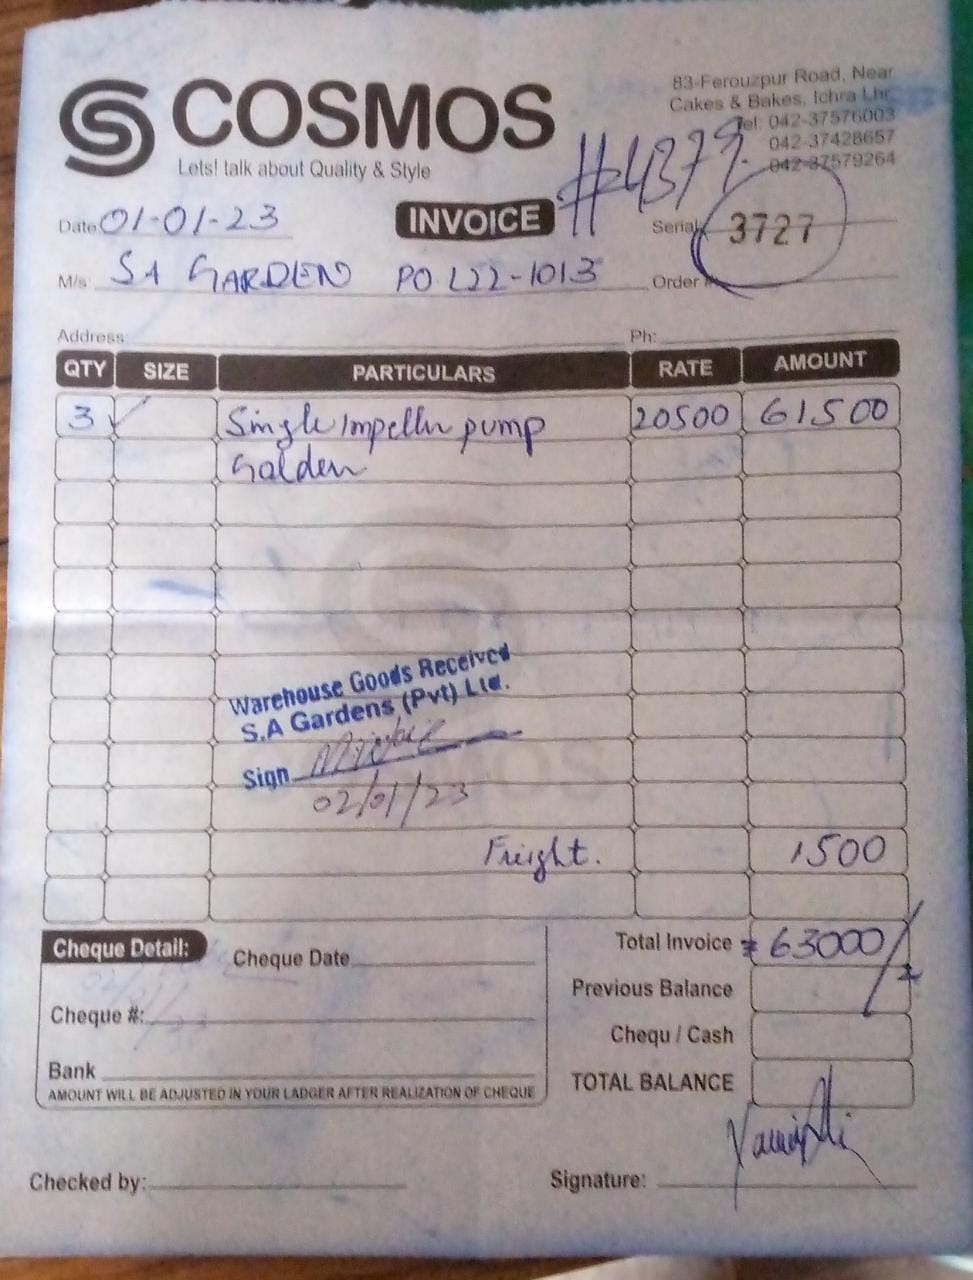 COSMOS
Lets! talk about Quality & Style
83-Ferouzpur Road, Near
Cakes & Bakes, Ichra Lhr.
Tel: 042-37576003
042-37428657
042-37579264
#4379
Date 01-01-23
INVOICE
Serial 3727
M/s: SA GARDEN PO L22-1013
Order #
Address:
Ph:
QTY SIZE PARTICULARS RATE AMOUNT
3 Single Impeller pump 20500 61500
Golden
Warehouse Goods Received
S.A Gardens (Pvt) Ltd.
Sign
02/01/23
Freight. 1500
Cheque Detail:
Cheque Date
Cheque #:
Bank
AMOUNT WILL BE ADJUSTED IN YOUR LADGER AFTER REALIZATION OF CHEQUE
Total Invoice 63000/
Previous Balance
Chequ / Cash
TOTAL BALANCE
Checked by:
Signature: